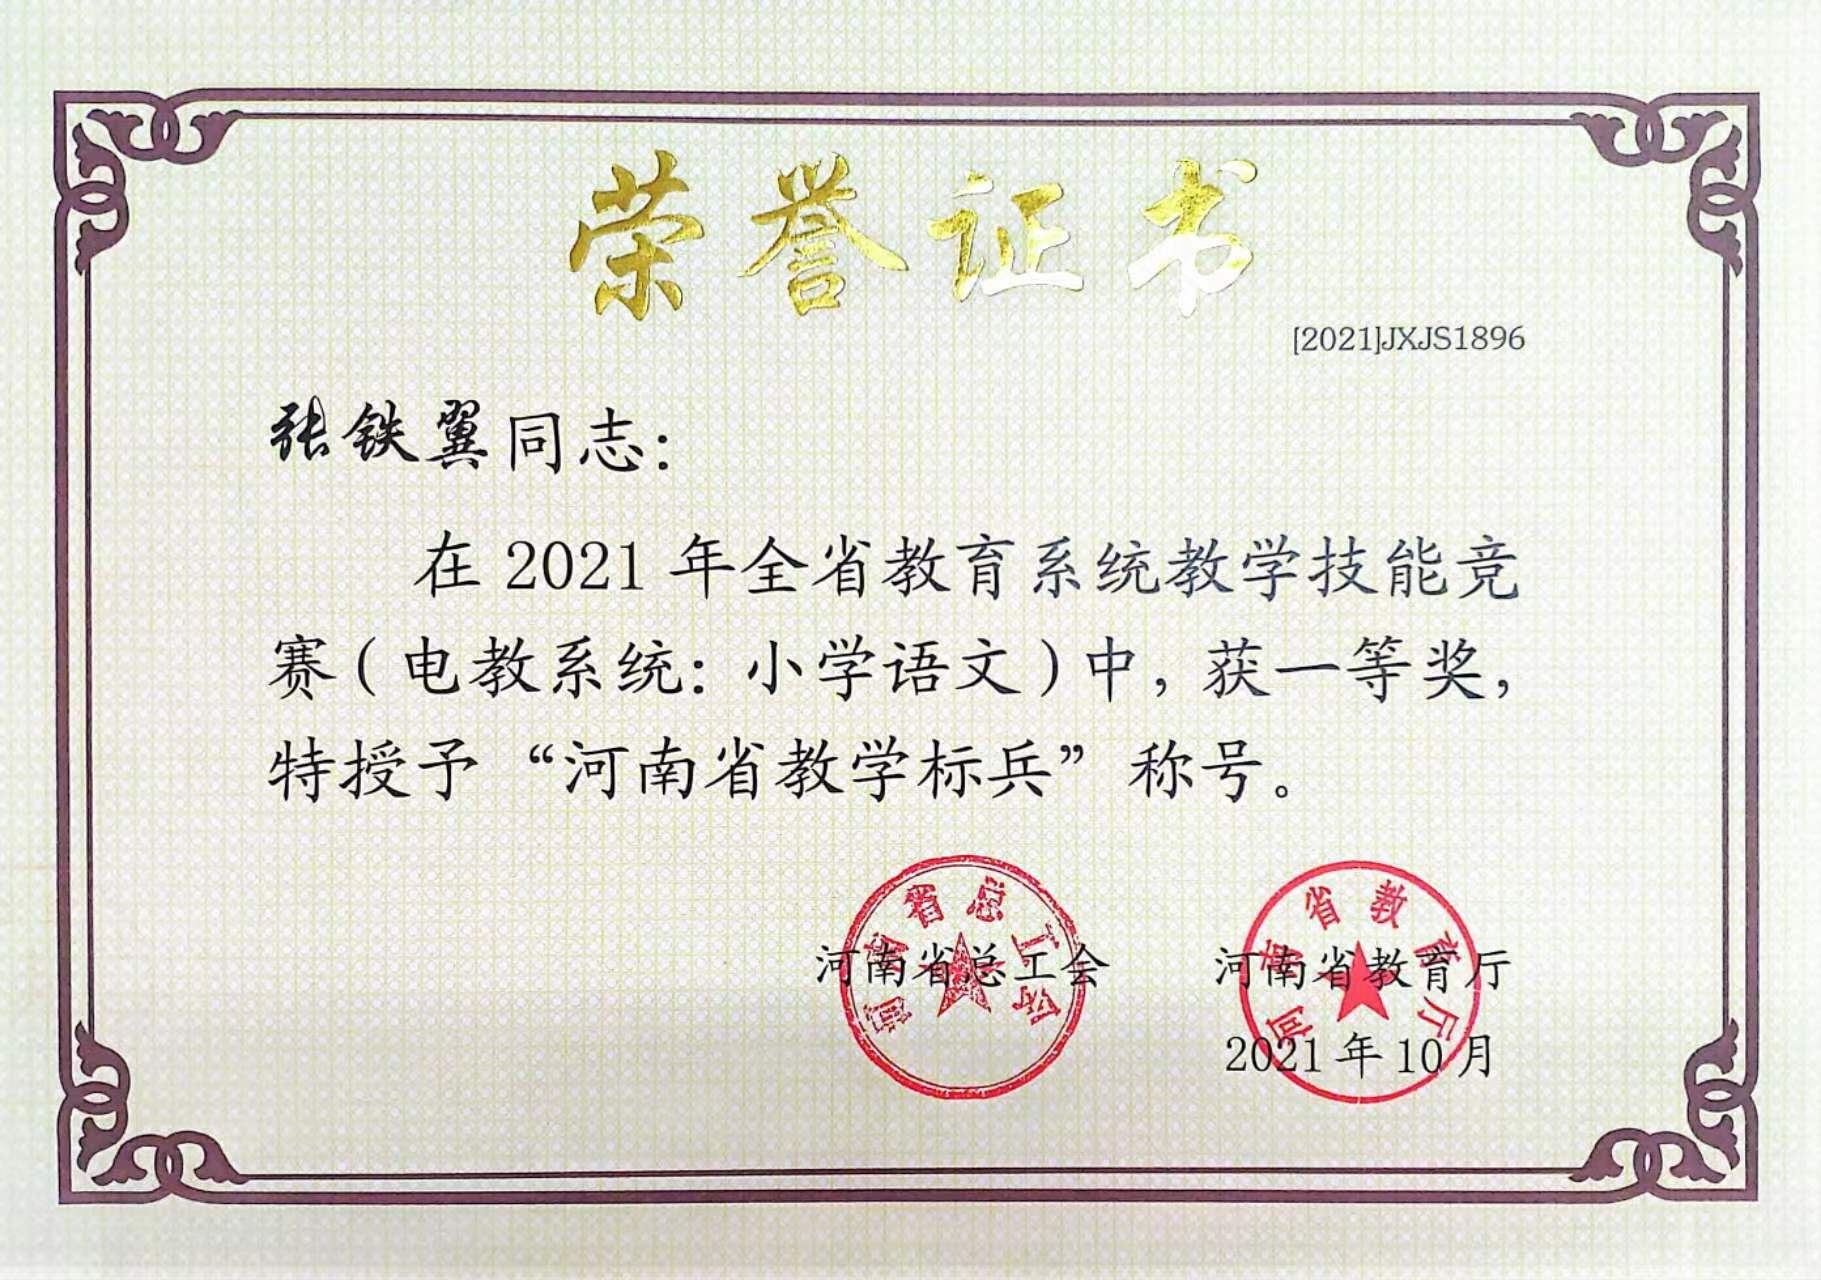 荣誉证书
[2021]JXJS1896
张铁翼同志：
在 2021 年全省教育系统教学技能竞
赛（电教系统：小学语文）中，获一等奖，
特授予“河南省教学标兵”称号。
河南省总工会
河南省教育厅
河南省总工会
河南省教育厅
2021 年 10 月